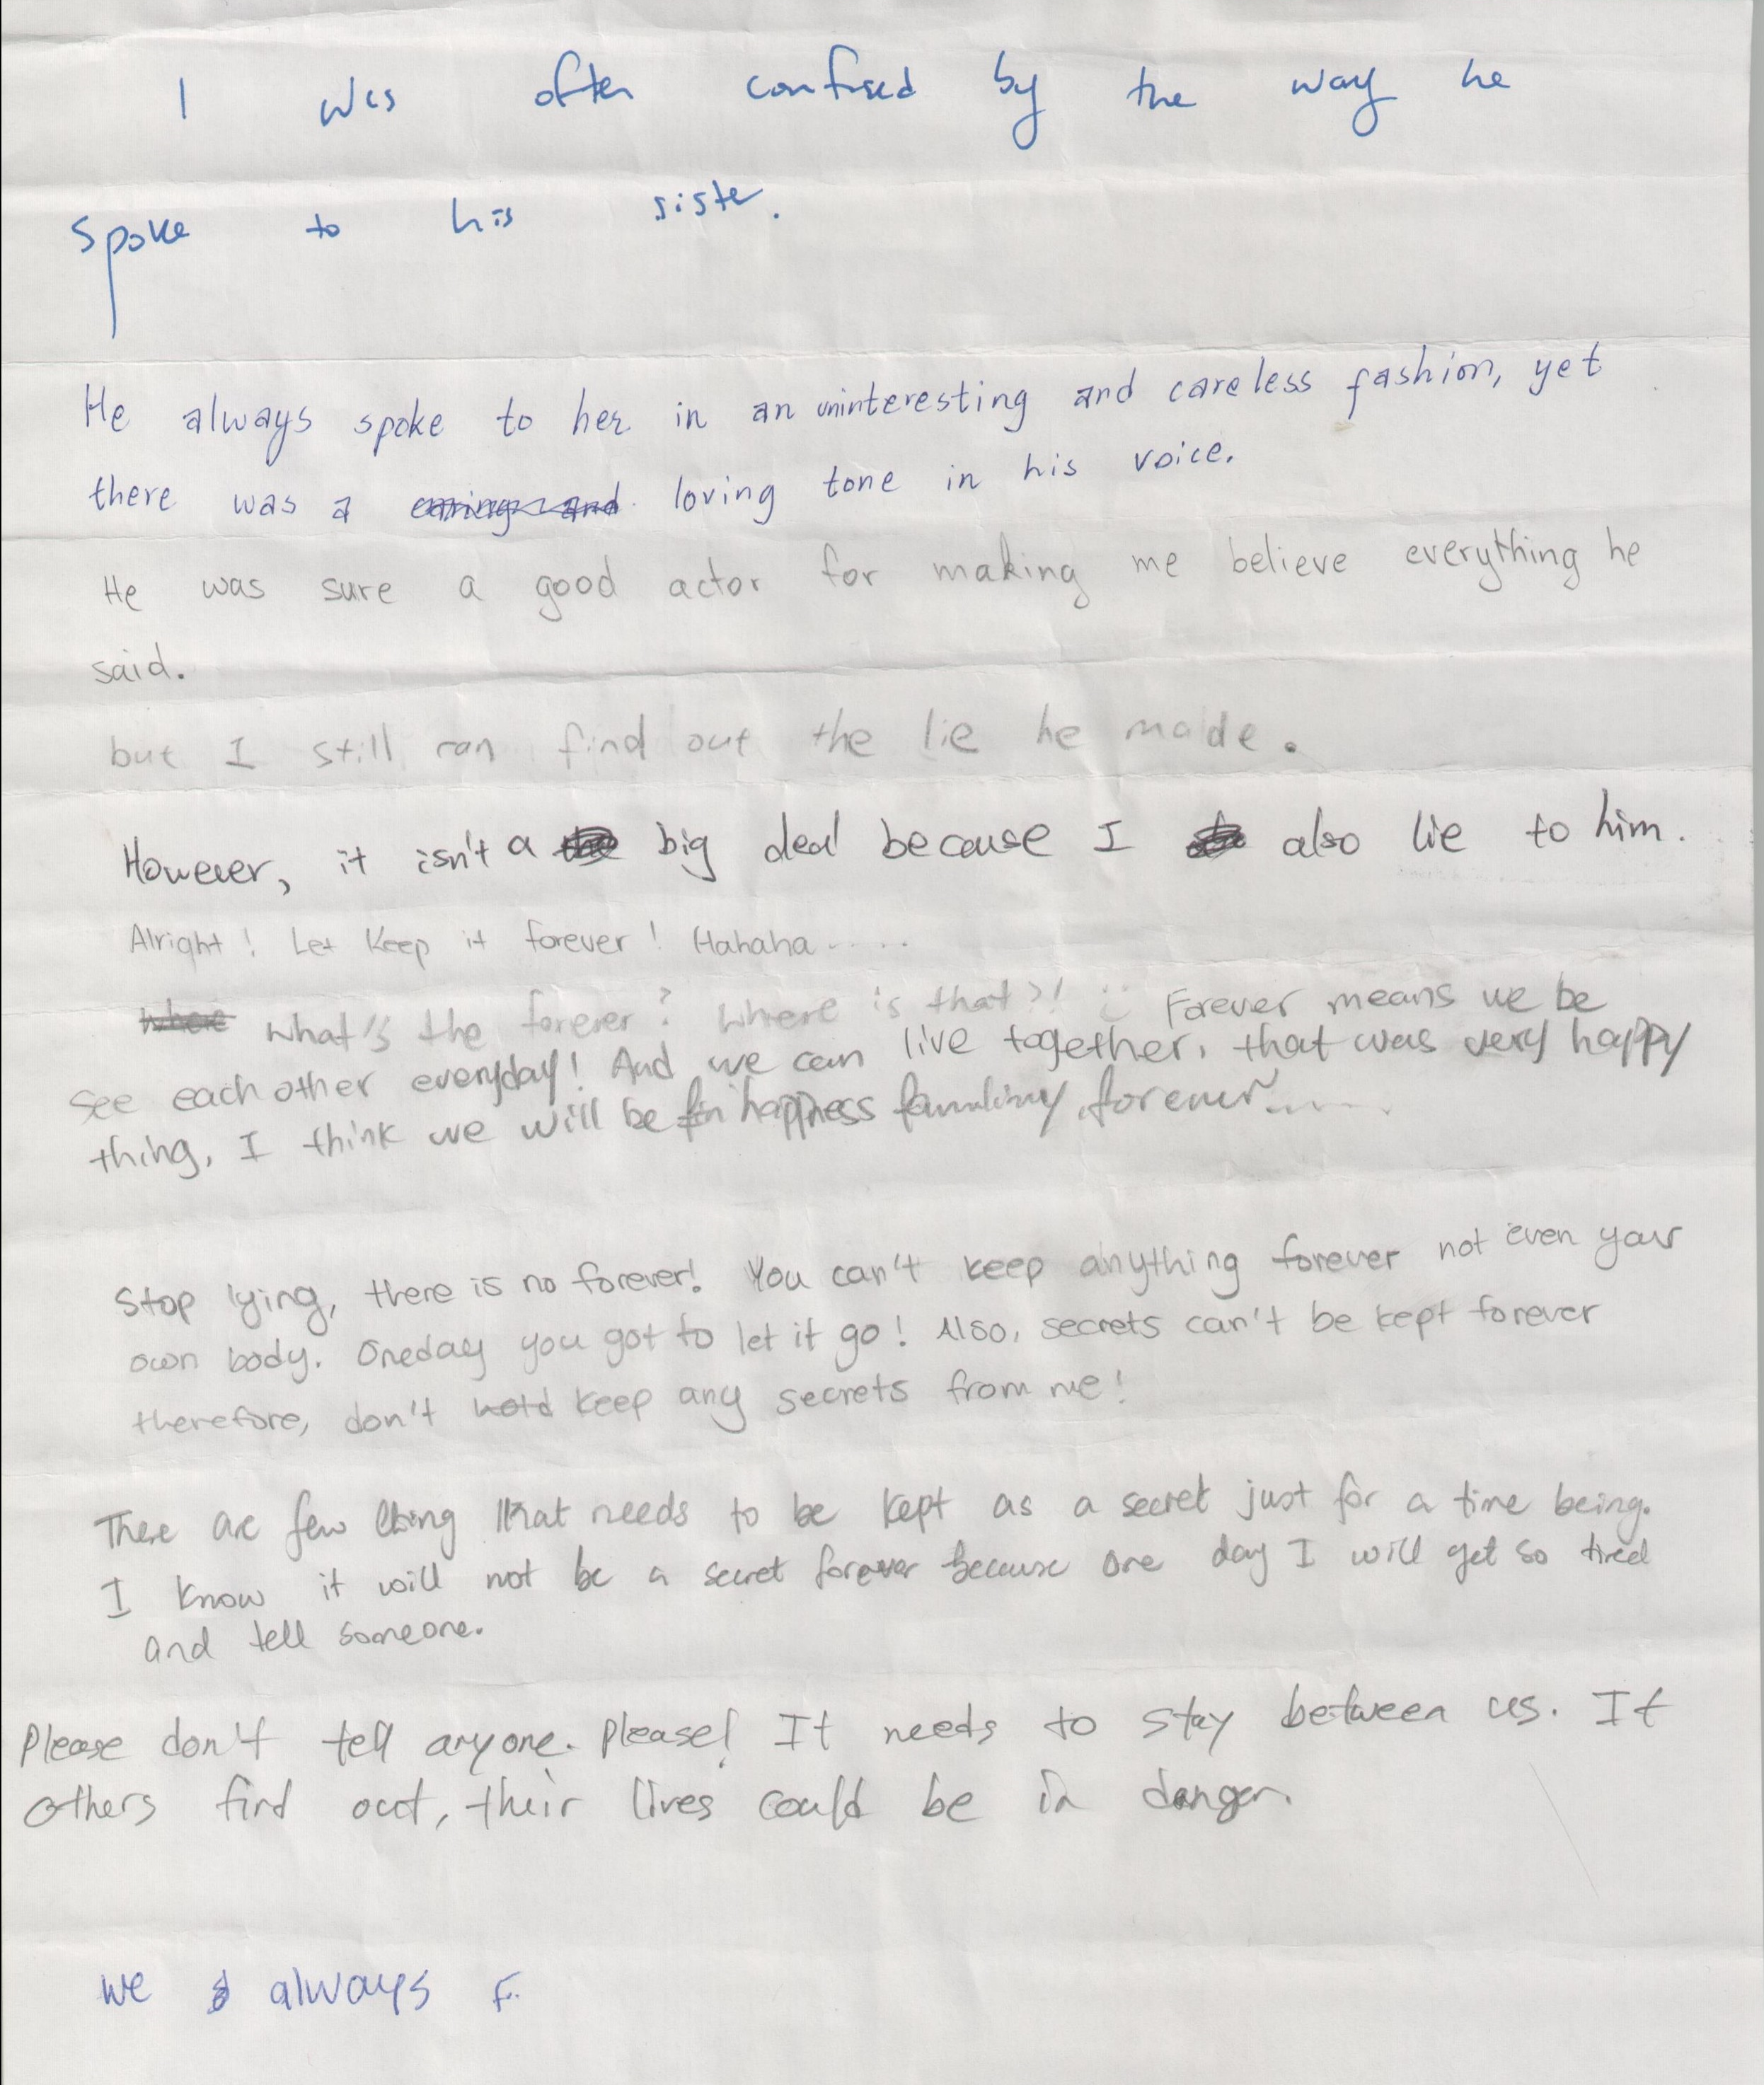 I was often confused by the way he
spoke to his sister.
He always spoke to her in an uninteresting and careless fashion, yet
there was a caring and loving tone in his voice.
He was sure a good actor for making me believe everything he
said.
but I still can find out the lie he made.
However, it isn't a big deal because I also lie to him.
Alright! Let Keep it forever! Hahaha.....
where what's the forever? Where is that?! Forever means we be
see each other everyday! And we can live together, that was very happy
thing, I think we will be happiness forever~.....
Stop lying, there is no forever! You can't keep anything forever not even your
own body. Oneday you got to let it go! Also, secrets can't be kept forever
therefore, don't hold keep any secrets from me!
There are few thing that needs to be kept as a secret just for a time being.
I know it will not be a secret forever because one day I will get so tired
and tell someone.
Please don't tell anyone. Please! It needs to stay between us. If
others find out, their lives could be in danger.
we always F.